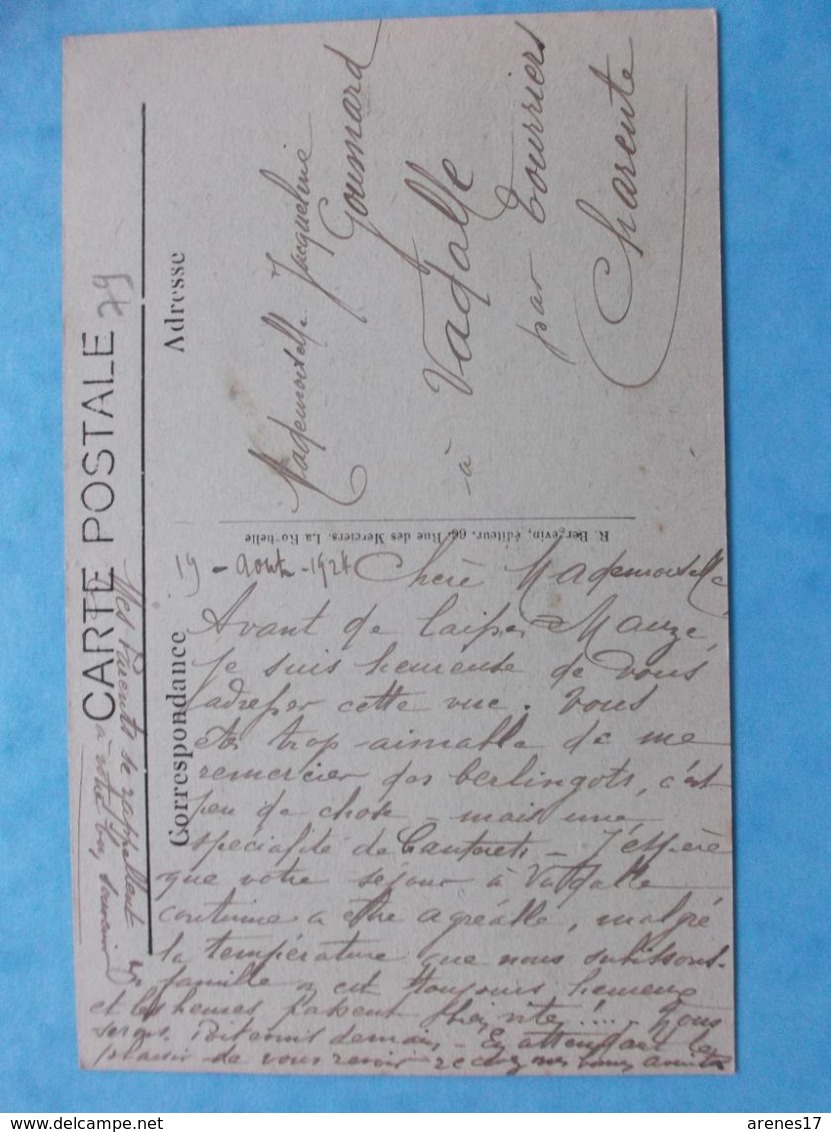 CARTE POSTALE
79
Correspondance
Adresse
R. Bergevin, éditeur, 66, Rue des Merciers, La Rochelle
Mademoiselle Jacqueline
Goumard
à Vadalle
par Tourriers
Charente
19 - Août - 1924
Chère Mademoiselle,
Avant de laisser Mauzé,
je suis heureuse de vous
adresser cette vue. Vous
êtes trop aimable de me
remercier des berlingots, c'est
peu de chose - mais une
spécialité de Cauterets - J'espère
que votre séjour à Vadalle
continue a être agréable, malgré
la température que nous subissons.
En famille on est toujours heureux
et les heures passent bien vite!... Nous
serons Poitevins demain - En attendant le
plaisir de vous revoir recevez mes bonnes amitiés
Mes Parents se rappellent
à votre bon souvenir
arenes17